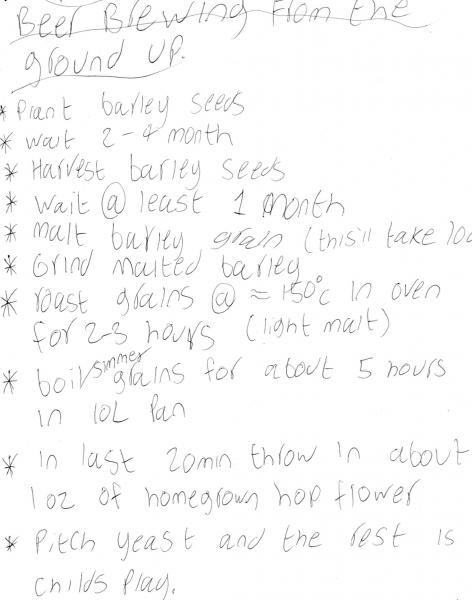 Beer Brewing From the
ground UP.
* Plant barley seeds
* wait 2-4 month
* Harvest barley seeds
* wait @ least 1 month
* malt barley grain (this'll take 10
* Grind malted barley
* roast grains @ ≈ 150°C in oven
for 2-3 hours (light malt)
simmer
* boil/ grains for about 5 hours
in 10L Pan
* in last 20min throw in about
1 oz of homegrown hop flower
* Pitch yeast and the rest is
childs Play.